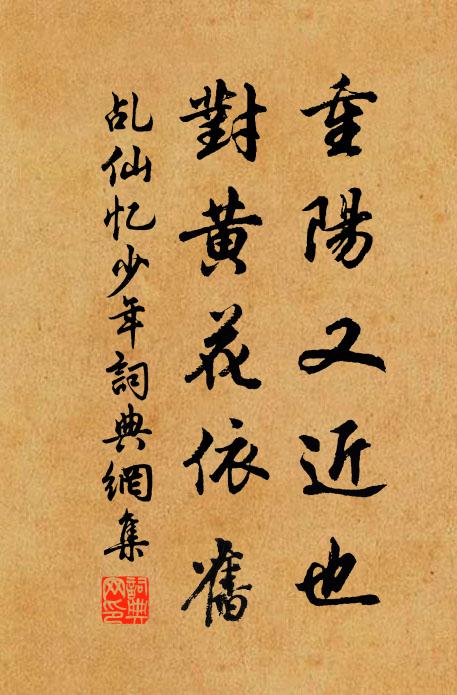 重陽又近也
對黄花依舊
乩仙忆少年詞典網集
詞典網印